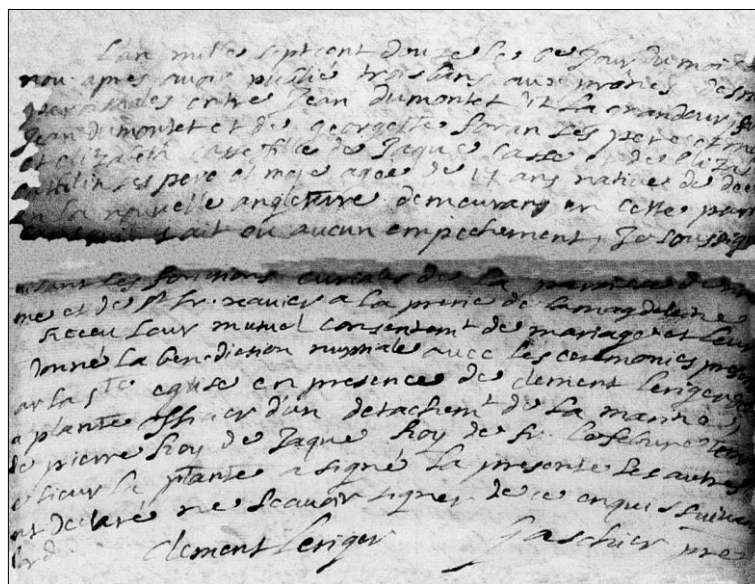 L'an mille septcent douze le 6e Jour du mois
nov. apres avoir publié trois bans aux prones des
entre Jean dumontet dit La grandeur
Jean dumontet et de georgette foran ses pere et
et elizabeth casse fille de Jaque casse et de
ses pere et mere agée de 17 ans native de
en la nouvelle angleterre demeurans en cette
sait ou aucun empechement, Je soussig
les fonctions curiales de la
me et de st fr. xavier a la prerie de lamagdeleine
Receu leur mutuel consentemt de mariage et leur
Donné la benediction nuptiale avec les ceremonies
ar la ste eglise en presence de clement leriger de
a plante officier d'un detachemt de la marine
de pierre Roy de Jaque Roy de fr. Lefebvre
sieur la plante a signé la presente les autres
nt declaré ne scavoir signer de ce enquis suivant
lord
clement leriger
pre